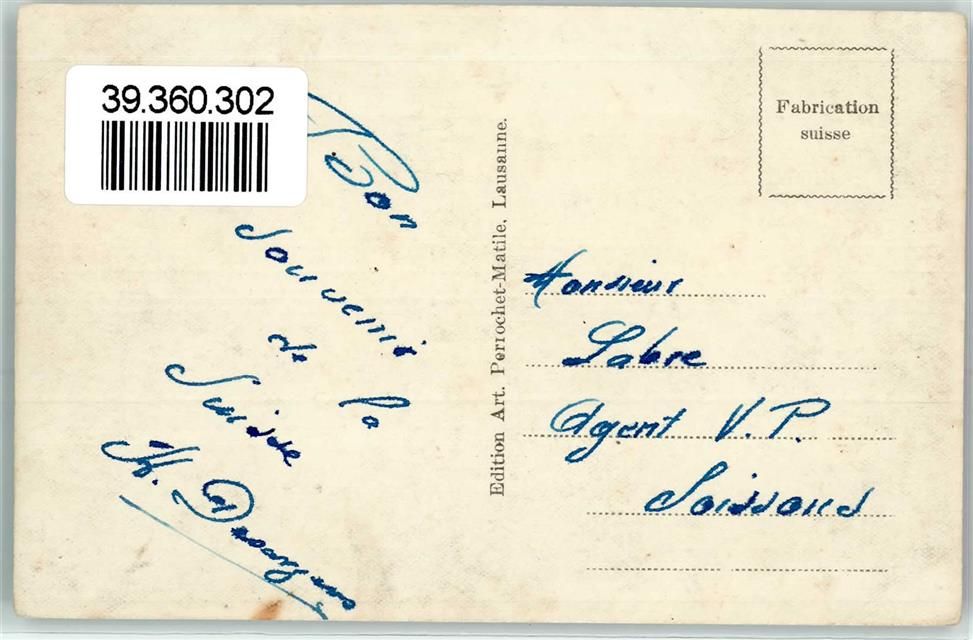 39.360.302
Bon
souvenir
de la
Suisse
Edition Art. Perrochet-Matile, Lausanne.
Fabrication
suisse
Monsieur
Labre
Agent V. P.
Soissons